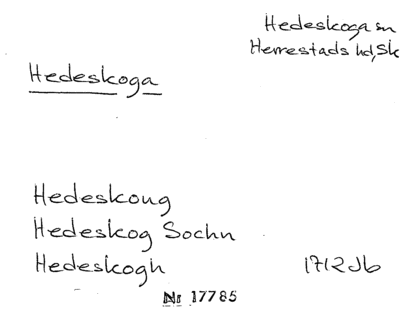 Hedeskoga sn
Herrestads hd, Sk
Hedeskoga
Hedeskoug
Hedeskog Sochn
Hedeskogh 1712 Jb
Nr 17785